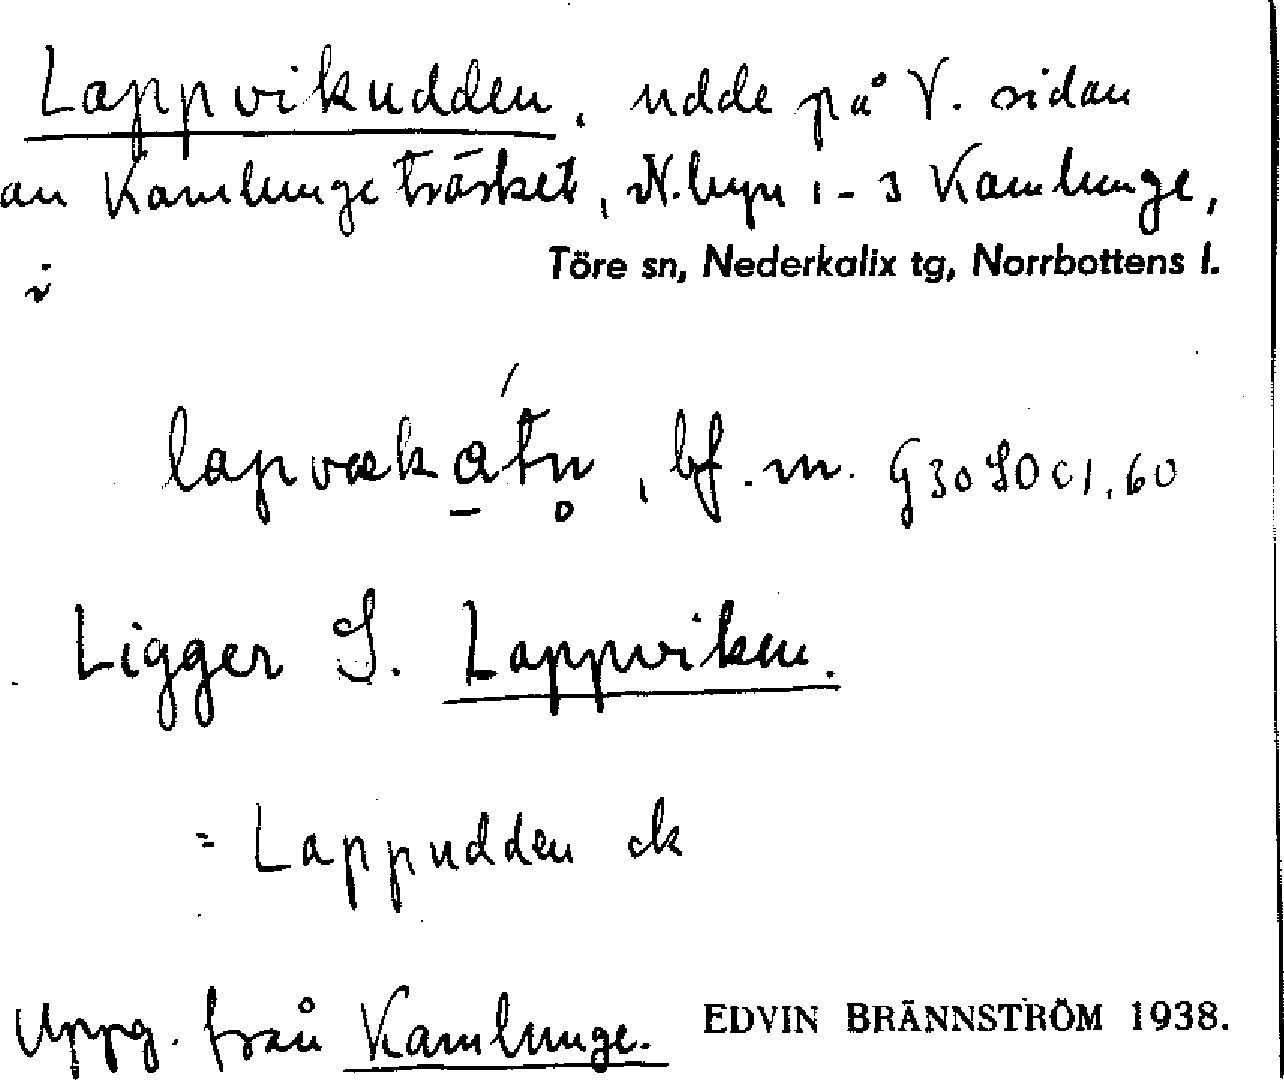 Lappvikudden, udde på V. sidan
av Kamlungeträsket, N. byn 1-3 Kamlunge,
i Töre sn, Nederkalix tg, Norrbottens l.
bf. m. G30
Ligger S. Lappviken.
= Lappudden ek
Uppg. från Kamlunge. EDVIN BRÄNNSTRÖM 1938.